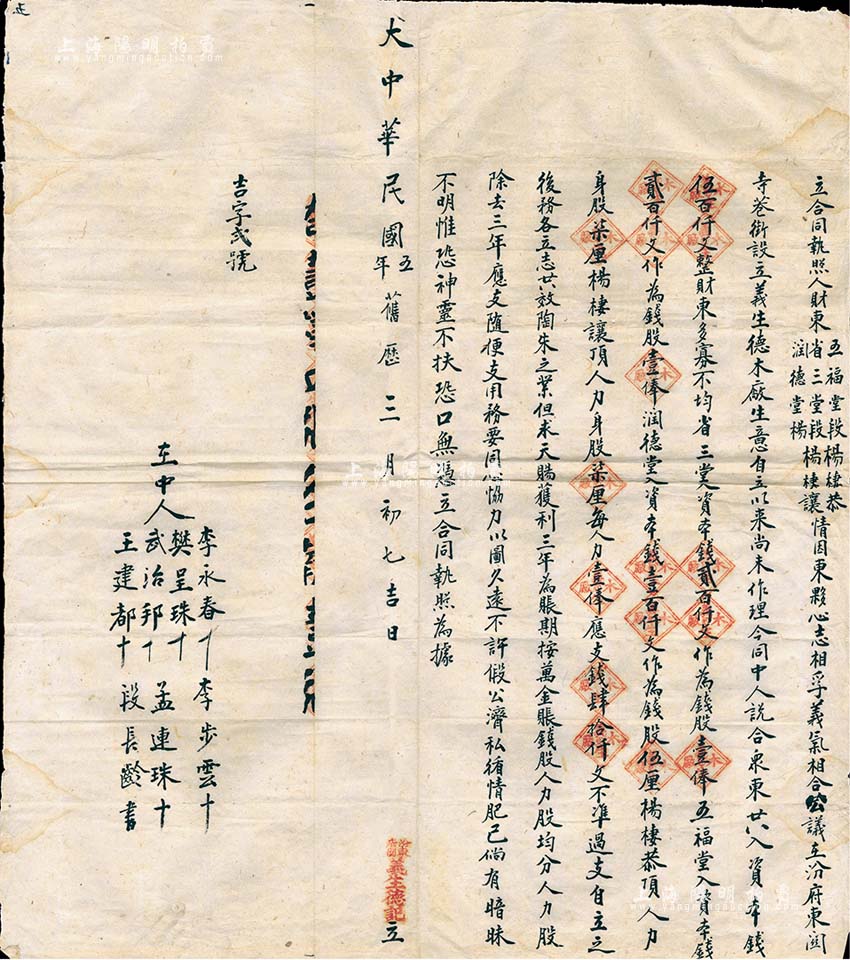 立合同執照人財東 五福堂段楊棲恭 省三堂段楊棲讓 潤德堂楊 情因東夥心志相孚義氣相合公議在汾府東関
寺巷街設立義生德木廠生意自立以来尚未作理今同中人説合衆東共入資本錢
伍百仟文整財東多寡不均省三堂入資本錢貳百仟文作為錢股壹俸五福堂入資本錢
貳百仟文作為錢股壹俸潤德堂入資本錢壹百仟文作為錢股伍厘楊棲恭頂人力
身股柒厘楊棲讓頂人力身股柒厘每人力壹俸應支錢肆拾仟文不準過支自立之
後務各立志共效陶朱之業但求天賜獲利三年為賬期按萬金賬錢股人力股均分人力股
除去三年應支随便支用務要同心恊力以圖久遠不許假公濟私循情肥己倘有暗昧
不明惟恐神靈不扶恐口無憑立合同執照為據
大中華民國五年舊歷三月初七吉日 立
義生德記
吉字弍號
在中人
李永春十 李步雲十
樊呈珠十
武治邦十 孟連珠十
王建都十 段長齡書
五
上海陽明拍賣
www.yangmingauction.com